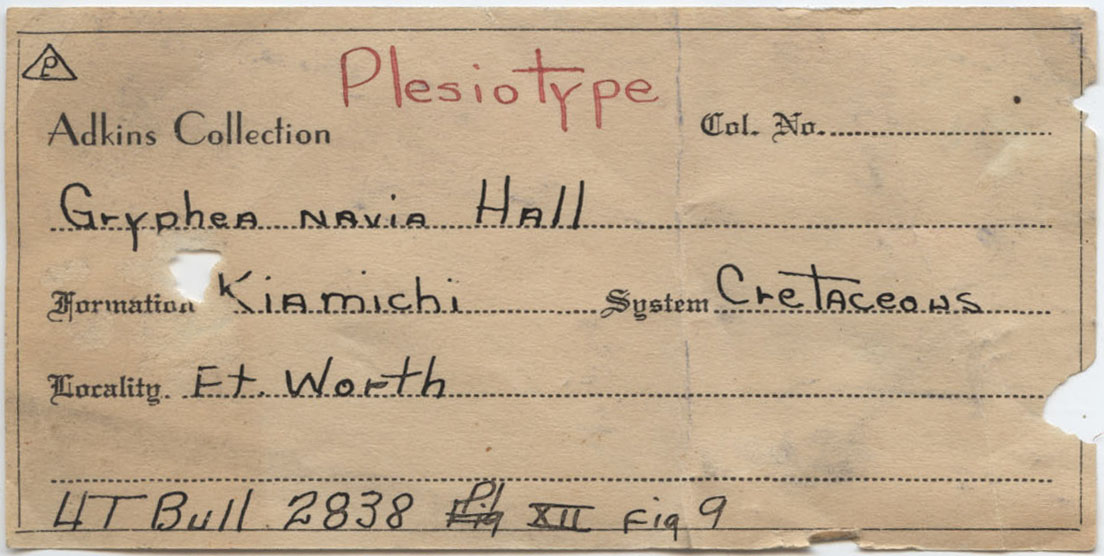 P
Plesiotype
Adkins Collection
Col. No.
Gryphea navia Hall
Formation Kiamichi System Cretaceous
Locality. Ft. Worth
UT Bull 2838 Pl XII Fig 9